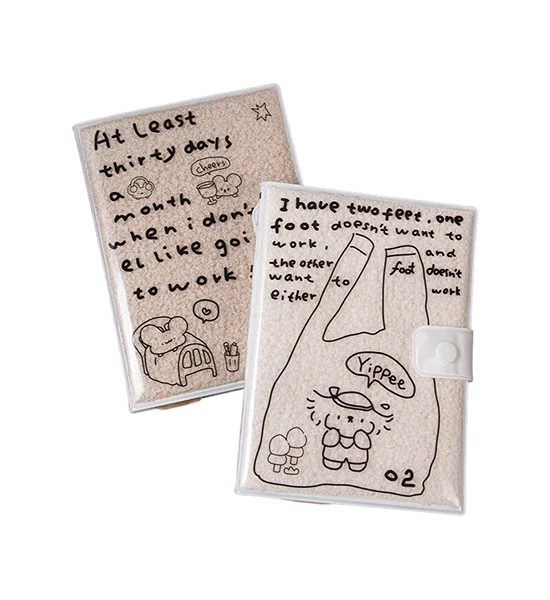 At Least
thirty days
a
month
cheers
when i don't
el like goi
to work!
I have two feet. one
foot doesn't want to
work, and
the other foot doesn't
want to work
either
Yippee
02